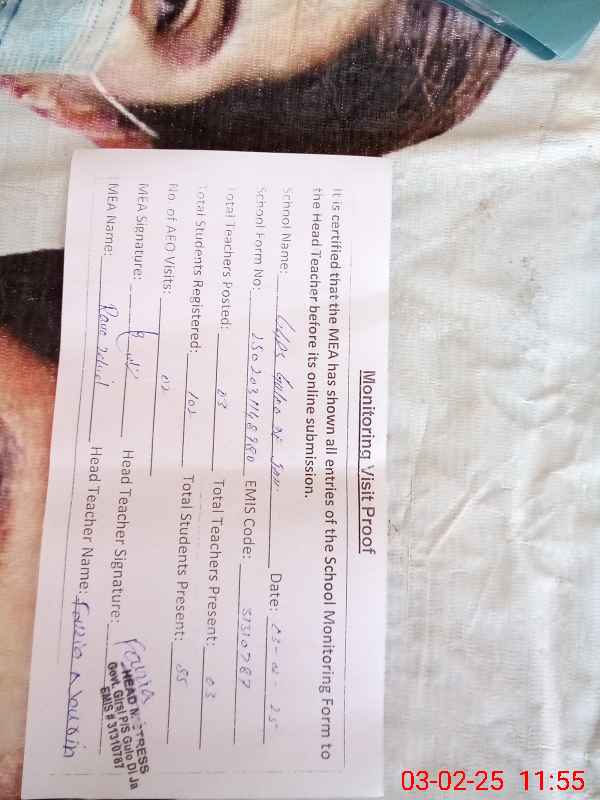 Monitoring Visit Proof
It is certified that the MEA has shown all entries of the School Monitoring Form to
the Head Teacher before its online submission.
School Name: GGPS Date: 03-02-25
School Form No: EMIS Code: 31310787
Total Teachers Posted: 03 Total Teachers Present: 03
Total Students Registered: 102 Total Students Present: 85
No. of AEO Visits: 02
MEA Signature: Head Teacher Signature: Fouzia
MEA Name: Head Teacher Name: Fouzia
HEAD MISTRESS
Govt. Girsl P/S Gulo Di Ja
EMIS # 31310787
03-02-25 11:55